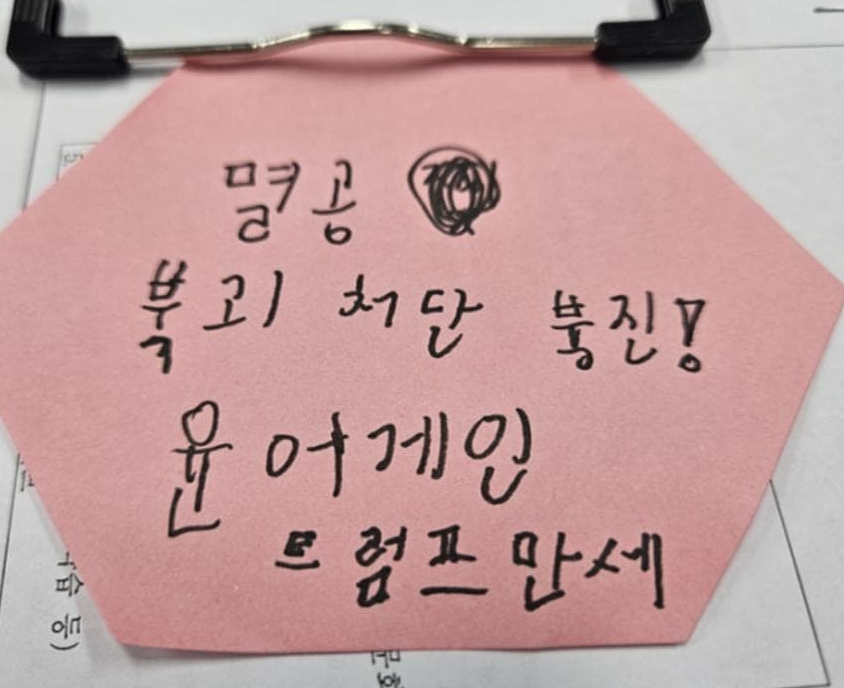 멸공
북괴 처단 북진!
윤 어게인
트럼프 만세
습 등)